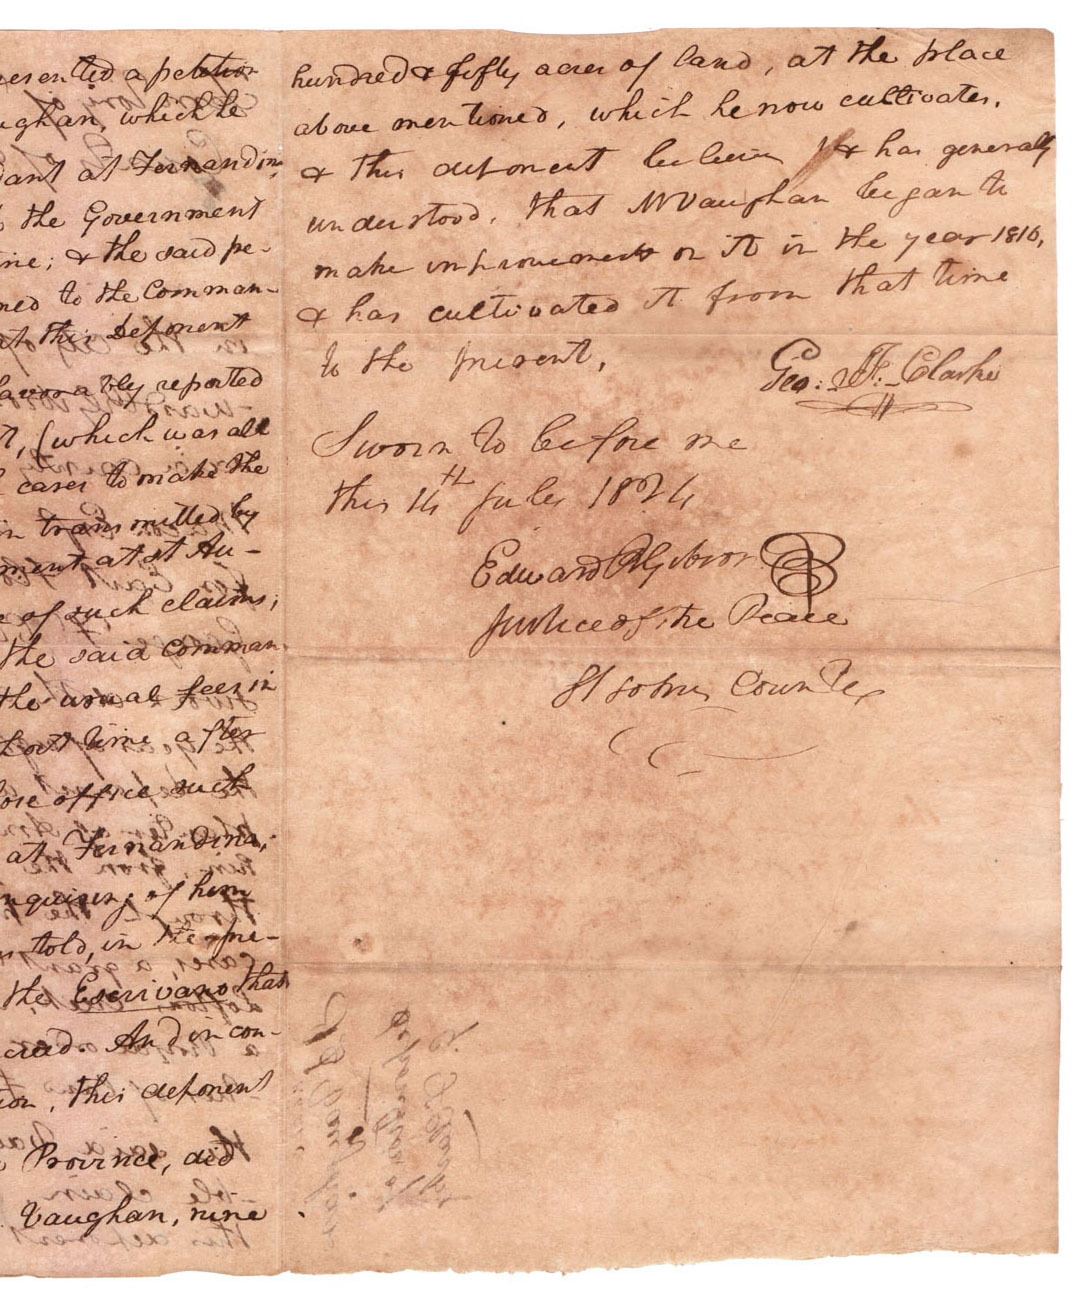 esented a petition
ughan, which he
dant at Fernandina,
the Government
ine; & the said pe-
ned to the Comman-
at this deponent
favorably reported
t, (which was all
cases to make the
in transmitted by
ment at St Au-
e of such claims;
the said comman-
the usual fees in
hort time after
ose office such
at Fernandina,
nquiring of him
s told, in the pre-
the Escrivano that
creed. And in con-
ion, this deponent
Province, did
Vaughan, nine
hundred & fifty acres of land, at the place
above mentioned, which he now cultivates,
& this deponent believes & has generally
understood, that Mr Vaughan began to
make improvements on it in the year 1816,
& has cultivated it from that time
to the present.
Geo: F. Clarke
Sworn to before me
this 14th July 1824
Edward R Gibson
Justice of the Peace
St Johns County